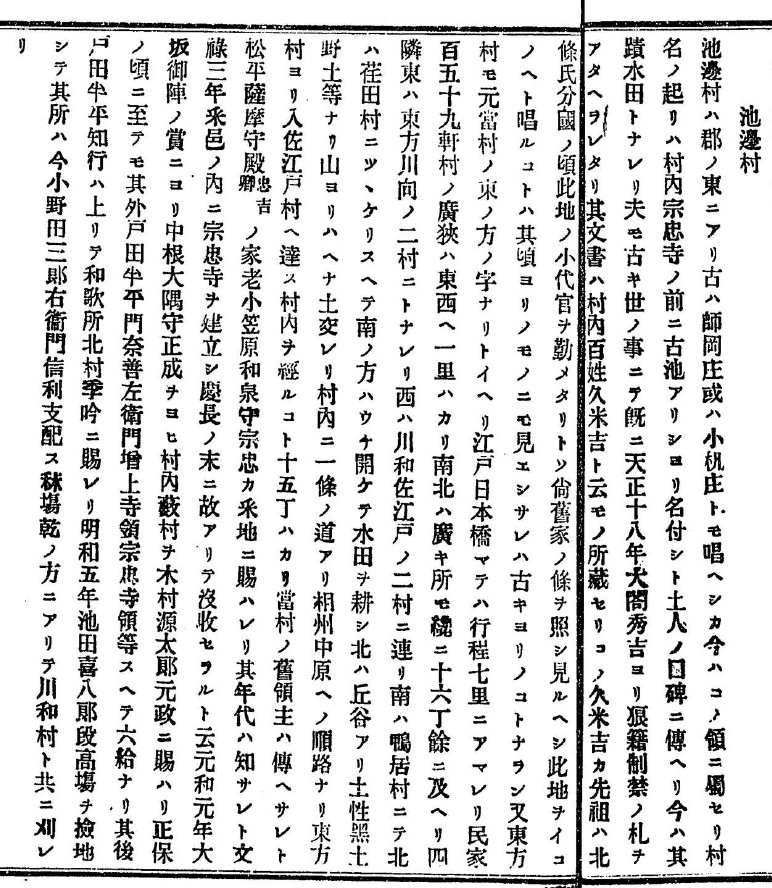 池邊村
池邊村ハ郡ノ東ニアリ古ハ師岡庄或ハ小机庄トモ唱ヘシカ今ハコノ領ニ屬セリ村
名ノ起リハ村內宗忠寺ノ前ニ古池アリショリ名付シト土人ノ口碑ニ傳ヘリ今ハ其
蹟水田トナレリ夫モ古キ世ノ事ニテ旣ニ天正十八年大閤秀吉ヨリ狼籍制禁ノ札ヲ
アタヘラレタリ其文書ハ村內百姓久米吉ト云モノ所藏セリコノ久米吉カ先祖ハ北
條氏分國ノ頃此地ノ小代官ヲ勤メタリトソ尙舊家ノ條ヲ照シ見ルヘシ此地ヲイコ
ノヘト唱ルコトハ其頃ヨリノモノニモ見エシサレハ古キヨリノコトナラン又東方
村モ元當村ノ東ノ方ノ字ナリトイヘリ江戶日本橋マテハ行程七里ニアマレリ民家
百五十九軒村ノ廣狹ハ東西ヘ一里ハカリ南北ハ廣キ所モ纔ニ十六丁餘ニ及ヘリ四
隣東ハ東方川向ノ二村ニトナレリ西ハ川和佐江戶ノ二村ニ連リ南ハ鴨居村ニテ北
ハ荏田村ニツヽケリスヘテ南ノ方ハウチ開ケテ水田ヲ耕シ北ハ丘谷アリ土性黑土
野土等ナリ山ヨリハヘナ土交レリ村內ニ一條ノ道アリ相州中原ヘノ順路ナリ東方
村ヨリ入佐江戶村ヘ達ス村內ヲ經ルコト十五丁ハカリ當村ノ舊領主ハ傳ヘサレト
松平薩摩守殿忠吉卿ノ家老小笠原和泉守宗忠カ釆地ニ賜ハレリ其年代ハ知サレト文
祿三年釆邑ノ內ニ宗忠寺ヲ建立シ慶長ノ末ニ故アリテ沒收セラルト云元和元年大
坂御陣ノ賞ニヨリ中根大隅守正成ヲヨヒ村內藪村ヲ木村源太郞元政ニ賜ハリ正保
ノ頃ニ至テモ其外戶田半平門奈善左衞門增上寺領宗忠寺領等スヘテ六給ナリ其後
戶田半平知行ハ上リテ和歌所北村季吟ニ賜レリ明和五年池田喜八郞段高塲ヲ撿地
シテ其所ハ今小野田三郞右衞門信利支配ス秣塲乾ノ方ニアリテ川和村ト共ニ刈レ
リ